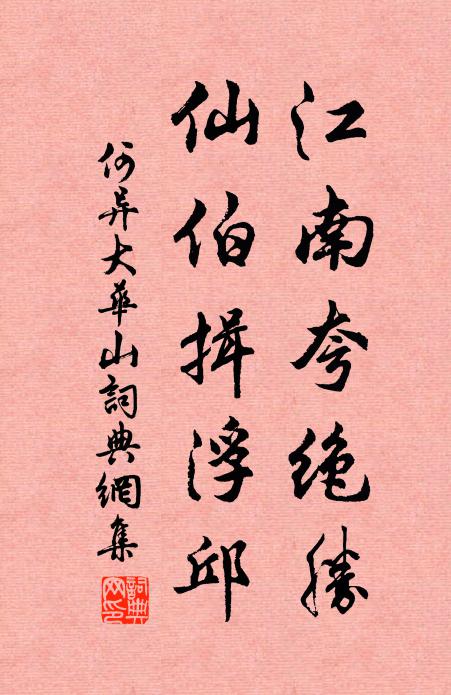 江南夸绝勝
仙伯揖浮邱
何异大華山詞典網集
詞典網印